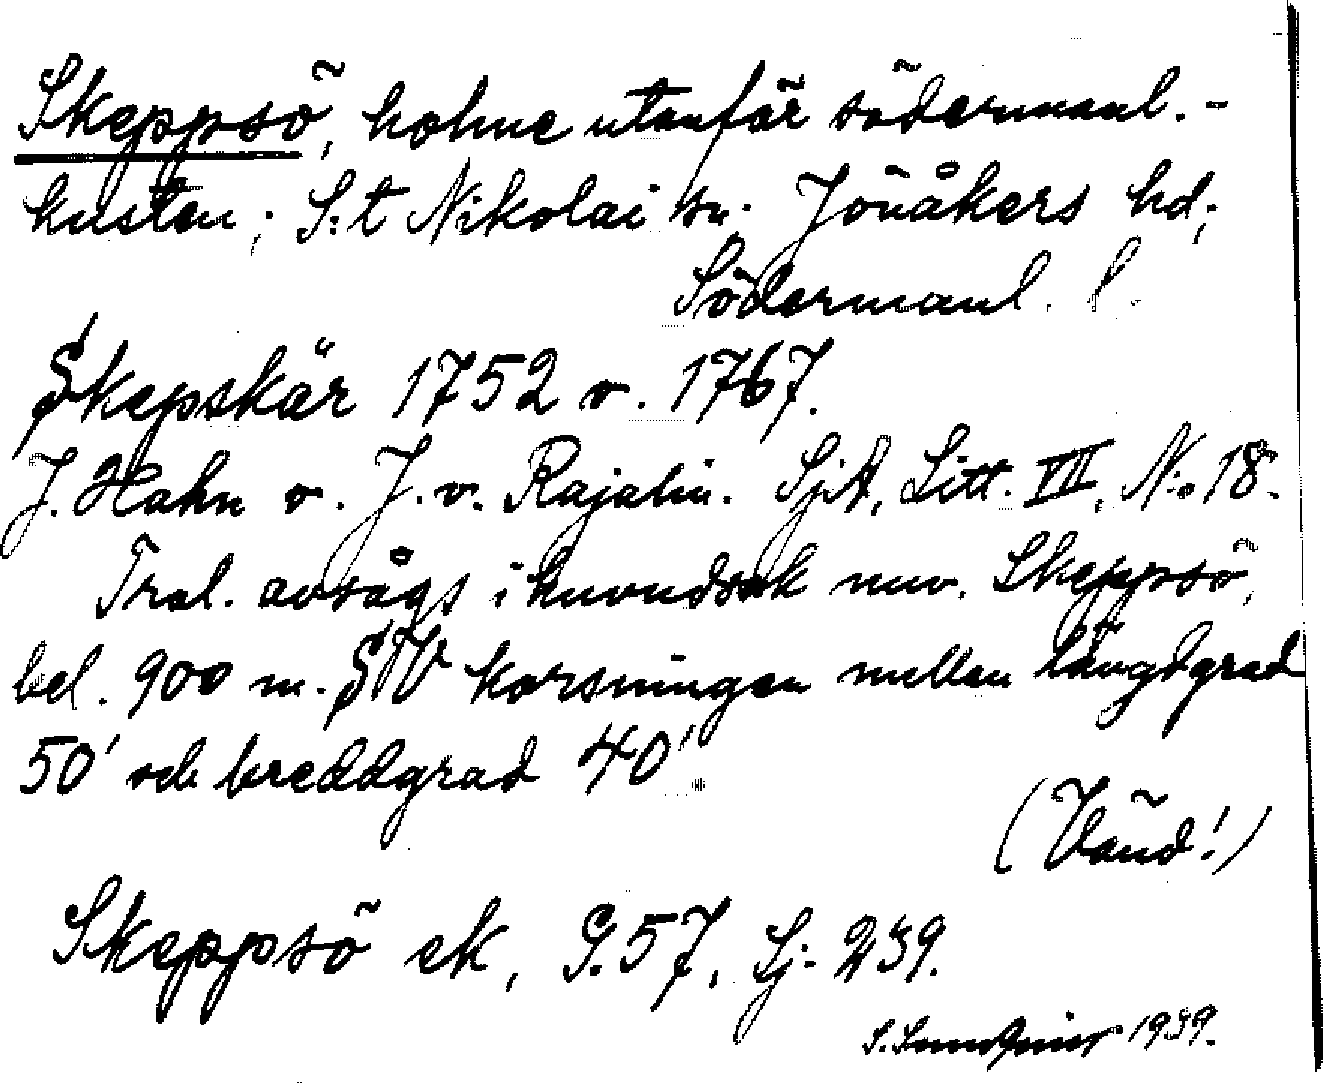 Skeppsö, holme utanför södermanl.-
kusten; S:t Nikolai sn. Jönåkers hd;
Södermanl. l.
Skepskär 1752 o. 1767.
J. Hahn o. J. v. Rajalin. SjA, Litt. VII, N:o 18.
Trol. avsågs i huvudsak nuv. Skeppsö,
bel. 900 m. SW korsningen mellan längdgrad
50' och breddgrad 40'.
(Vänd!)
Skeppsö ek, G. 57, Sj: 239.
1939.